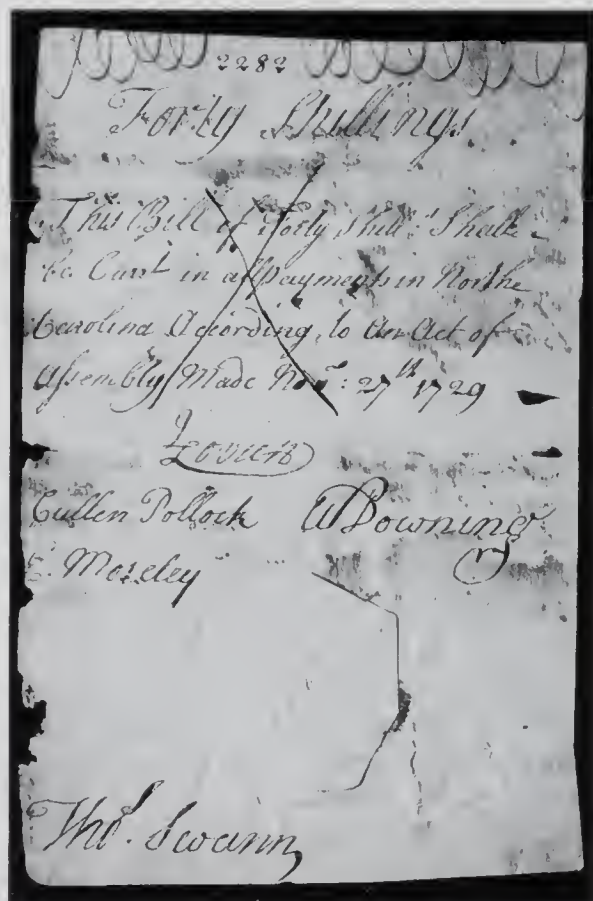 2282
Forty Shillings
This Bill of Forty Shill:s Shall
be Curr.t in all payments in North
Carolina According to An Act of
Assembly Made Nov.r: 27th 1729
Lovick
Cullen Pollock WDowning
E: Moseley
Tho.s Swann